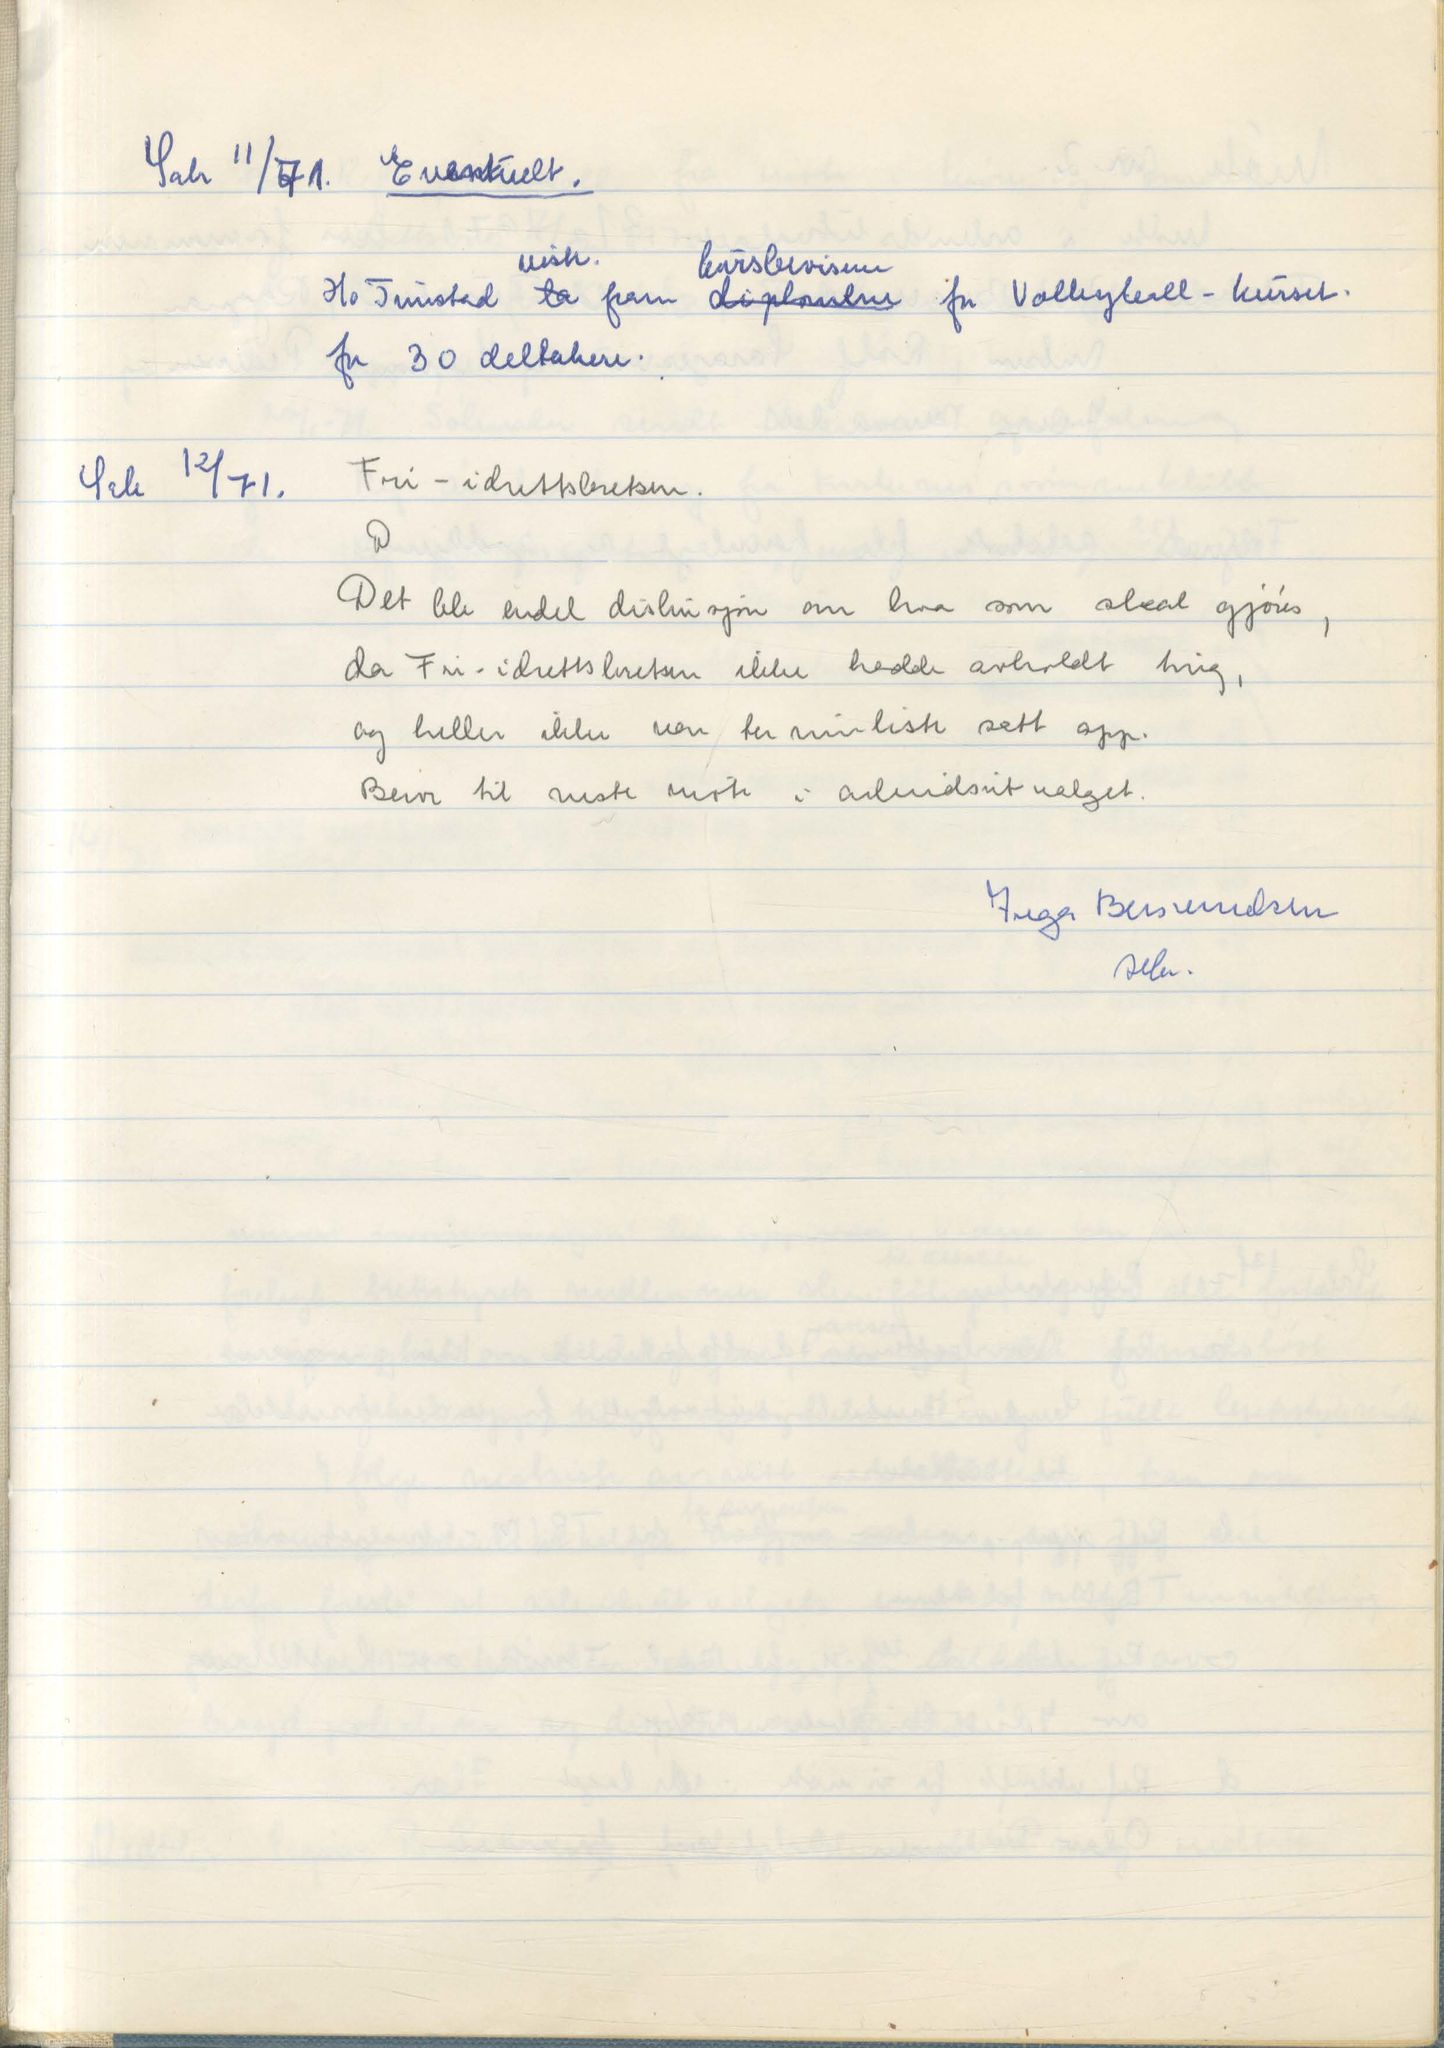 Sak 11/71. Eventuelt.
viste. kursbevisene
Ho Trustad ta fram diplomene fra Volleyball-kurset.
for 30 deltakere.
Sak 12/71. Fri-idrettskretsen.
D
Det ble endel diskusjon om hva som skal gjöres,
da Fri-idrettskretsen ikke hadde avholdt ting,
og heller ikke var terminliste satt opp.
Beror til neste möte i arbeidsutvalget.
Inga Berntsen
sekr.